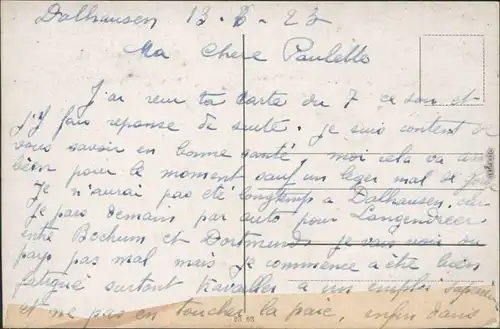 Dalhausen 13-8-23
Ma Chere Paulette
J'ai recu ta carte du 7 ce soir et
j'y fais reponse de suite. je suis content de
vous savoir en bonne santé, moi cela va aussi
bien pour le moment sauf un leger mal de
Je n'aurai pas été longtemps a Dalhausen, car
je pars demain par auto pour Langendreer
entre Bochum et Dortmund, je vais voir du
pays pas mal mais je commence a être bien
fatigué surtout travailler a un emploi
et ne pas en toucher la paie, enfin dans